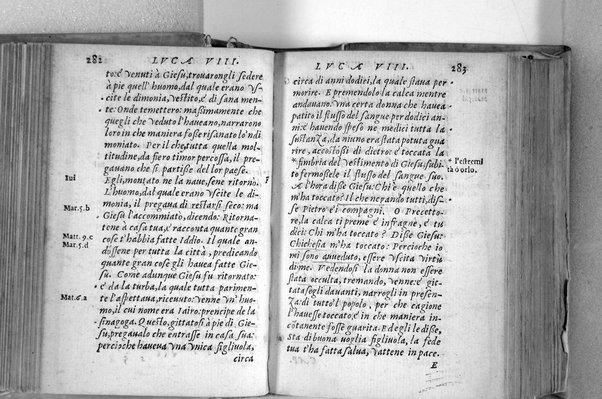 282
LVCÆ VIII.
to: è venuti à Giesù, trouarongli sedere
à pie quell' huomo, dal quale erano vs-
cite le dimonia, vestito, e di sana men-
te: Onde temettero: massimamente che
quegli che veduto l'haueano, narrarono
loro in che maniera fosse risanato lo'ndi
moniato. Per il che tutta quella mol-
titudine, da fiero timor percossa, il pre-
gauano che si partisse del lor paese.
Iui
Egli, montato ne la naue, sene ritornò.
L'huomo, dal quale erano vscite le di-
monia, il pregaua di restarsi seco: ma
Mar. 5.b
Giesù l'accommiato, dicendo: Ritorna-
tene à casa tua, è racconta quante gran
Matt. 9.c
cose t'habbia fatte Iddio. Il quale an-
Mar. 5.d
dossene per tutta la città, predicando
quante gran cose gli hauea fatte Gie-
sù. Come adunque Giesù fu ritornato:
è da la turba, la quale tutta parimen-
Mat. 6.a
te l'aspettaua, riceuuto: Venne vn' huo
mo, il cui nome era Iairo: prencipe de la
sinagoga. Questo, gittatosi à pie di Gie-
sù, pregaualo che entrasse in casa sua:
percioche haueua vna vnica figliuola,
circa
LVCÆ VIII.
283
circa di anni dodici, la quale staua per
morire. E premendolo la calca mentre
andauano: vna certa donna che hauea
patito il flusso del sangue per dodici an-
ni: è hauendo speso ne medici tutta la
sustanza, da niuno era stata potuta gua
rire, accostossi di dietro: è toccata la
*fimbria del vestimento di Giesù: subi-
* l'estremi
to fermossele il flusso del sangue suo.
tà o orlo.
A l'hora disse Giesù: Chi è quello che
m'ha toccato? Il che negando tutti, dis-
se Pietro è i compagni. O Precetto-
re, la calca ti preme è infragne, è tu
dici: Chi m'ha toccato? Disse Giesù:
Chichesia m'ha toccato: Percioche io
mi sono auueduto, essere vscita virtù
di me. Vedendosi la donna non essere
stata occulta, tremando, venne: è git-
tatasegli dauanti, narrogli in presen-
za di tutto'l popolo, per che cagione
l'hauesse toccato: è in che maniera in-
cōtanente fosse guarita. Ed egli le disse,
Sta di buona voglia figliuola, la fede
tua t'ha fatta salua, vattene in pace.
E